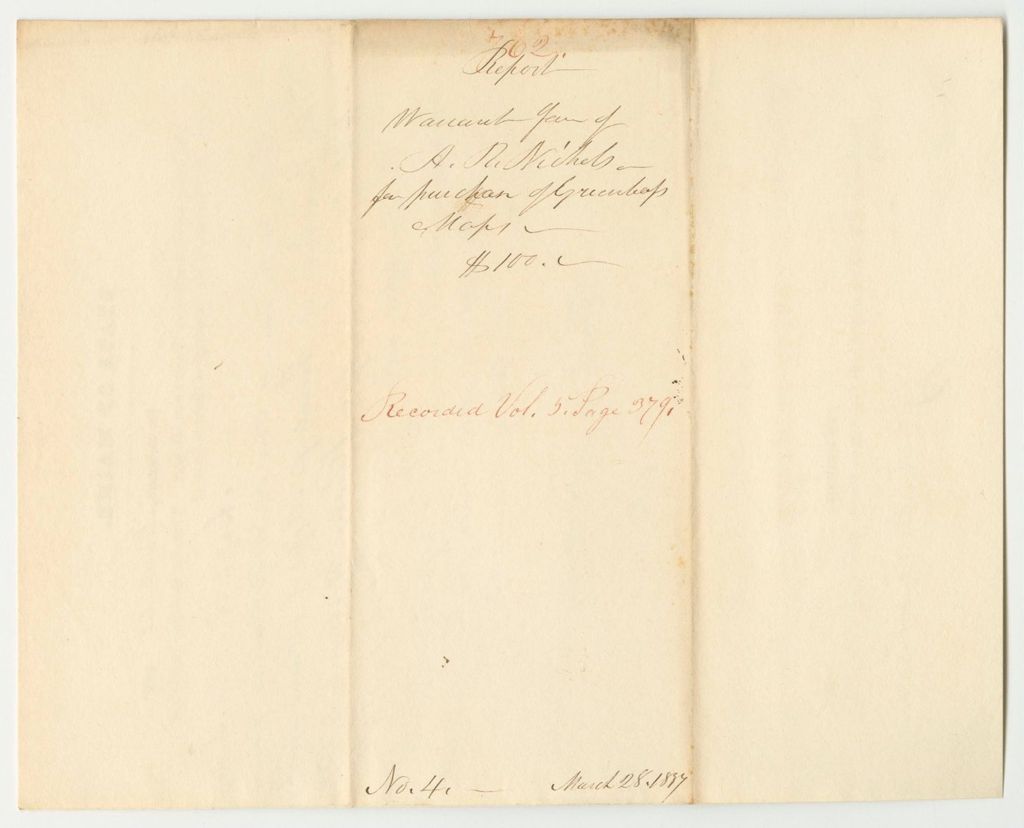 762
Report
Warrant fav of
A. R. Nichols
for purchase of Greenleafs
Maps
$100.
Recorded Vol. 5. Page 379.
No. 4. March 28. 1837